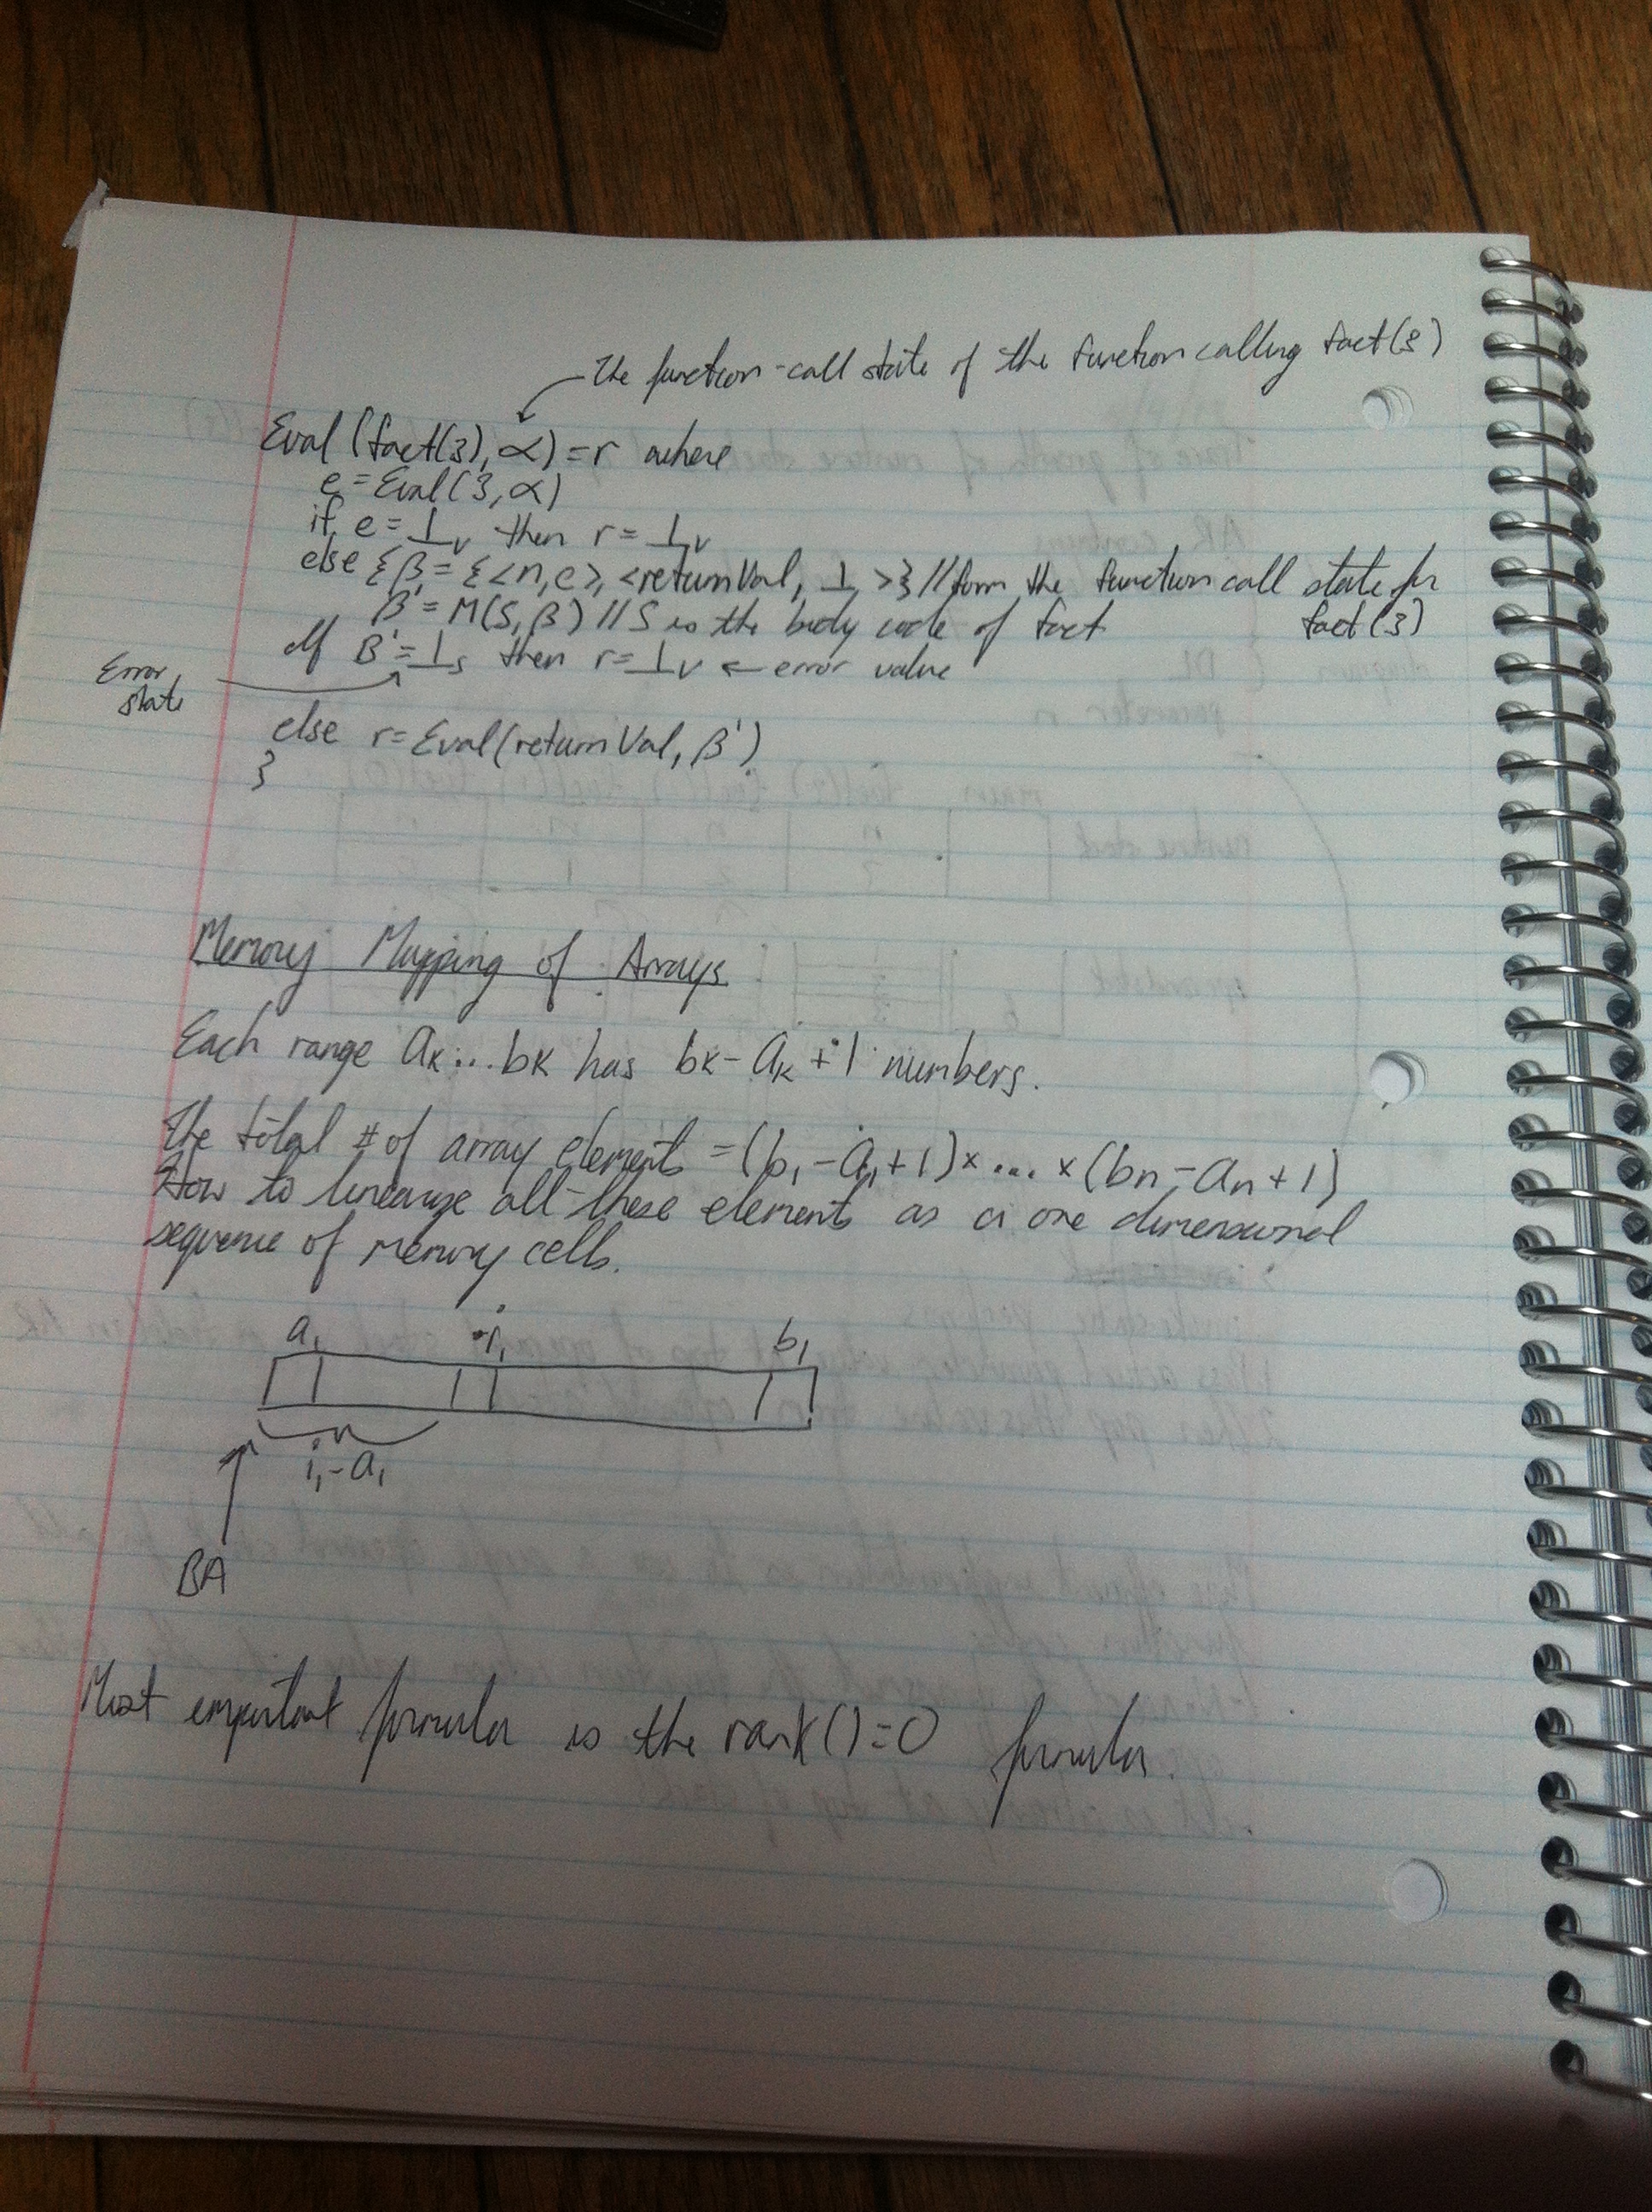 The function-call state of the function calling fact(3)
Eval (fact(3), α) = r where
e = Eval(3, α)
if e = ⊥v then r = ⊥v
else {β = {<n,e>, <returnVal, ⊥>} // form the function call state for
fact(3)
β' = M(S, β) // S is the body code of fact
If β' = ⊥s then r = ⊥v ← error value
Error
state
else r = Eval(returnVal, β')
}
Memory Mapping of Arrays
Each range ak...bk has bk - ak + 1 numbers.
The total # of array elements = (b1 - a1 + 1) × ... × (bn - an + 1)
How to linearize all these elements as a one dimensional
sequence of memory cells.
a1 i1 b1
i1 - a1
BA
Most important formula is the rank() = 0 formula.